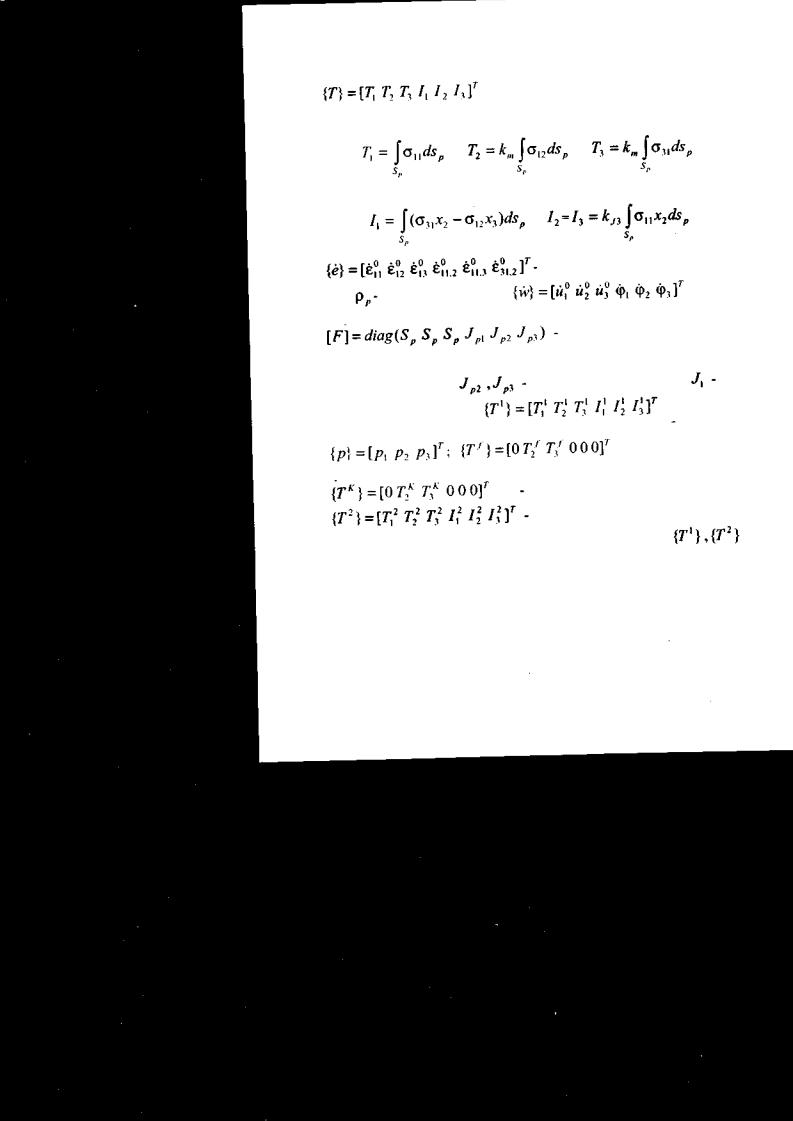 {T} = [T₁ T₂ T₃ I₁ I₂ I₃]ᵀ
T₁ = ∫_{S_p} σ₁₁ds_p   T₂ = k_m ∫_{S_p} σ₁₂ds_p   T₃ = k_m ∫_{S_p} σ₃₁ds_p
I₁ = ∫_{S_p} (σ₃₁x₂ − σ₁₂x₃)ds_p   I₂ = I₃ = k_{J3} ∫_{S_p} σ₁₁x₂ds_p
{ė} = [ε̇⁰₁₁ ε̇⁰₁₂ ε̇⁰₁₃ ε̇⁰₁₁.₂ ε̇⁰₁₁.₃ ε̇⁰₃₁.₂]ᵀ -
ρ_p -   {ẇ} = [u̇₁⁰ u̇₂⁰ u̇₃⁰ φ̇₁ φ̇₂ φ̇₃]ᵀ
[F] = diag(S_p S_p S_p J_{p1} J_{p2} J_{p3}) -
J_{p2} , J_{p3} -   J₁ -
{T¹} = [T₁¹ T₂¹ T₃¹ I₁¹ I₂¹ I₃¹]ᵀ
-
{p} = [p₁ p₂ p₃]ᵀ; {T^f} = [0 T₂^f T₃^f 0 0 0]ᵀ
{T^K} = [0 T₂^K T₃^K 0 0 0]ᵀ -
{T²} = [T₁² T₂² T₃² I₁² I₂² I₃²]ᵀ -
{T¹},{T²}